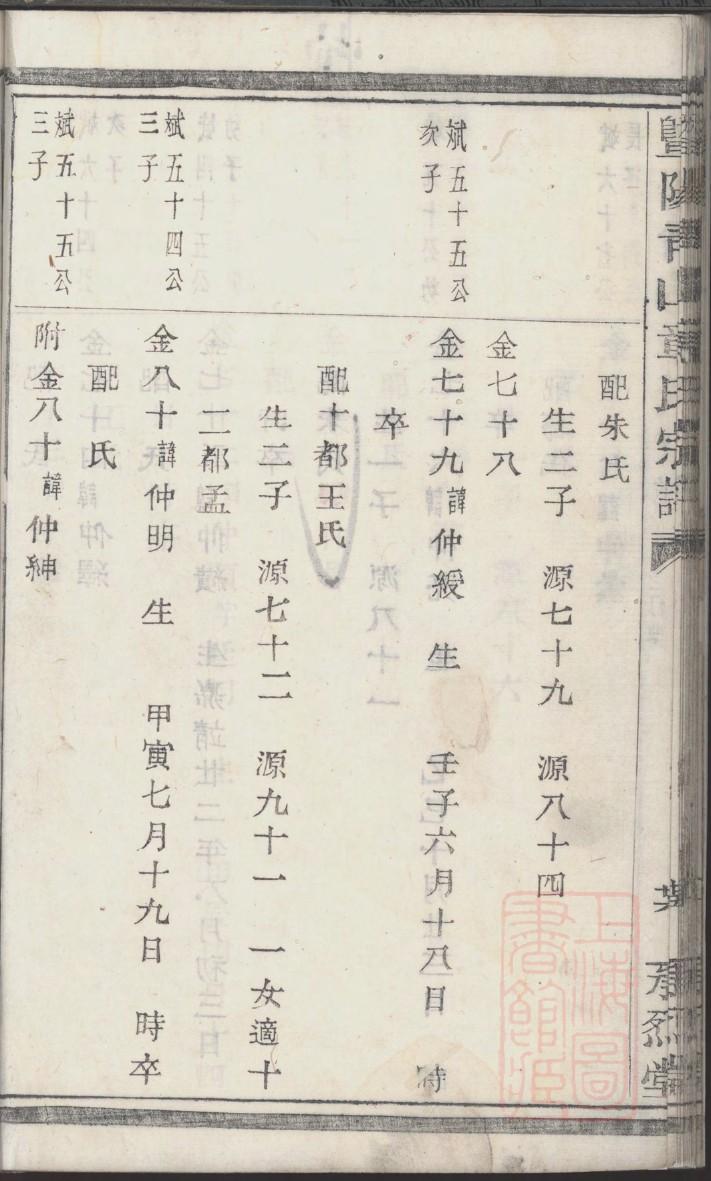 暨陽青山章氏宗譜
承烈堂
配朱氏
生二子 源七十九 源八十四
金七十八
斌五十五公
次子
金七十九 諱仲緩 生 壬子六月十八日 時
卒
配十都王氏
生二子 源七十二 源九十一 一女適十
二都孟
斌五十四公
三子
金八十 諱仲明 生 甲寅七月十九日 時卒
配 氏
斌五十五公
三子
附金八十 諱仲紳
上海圖
書館藏